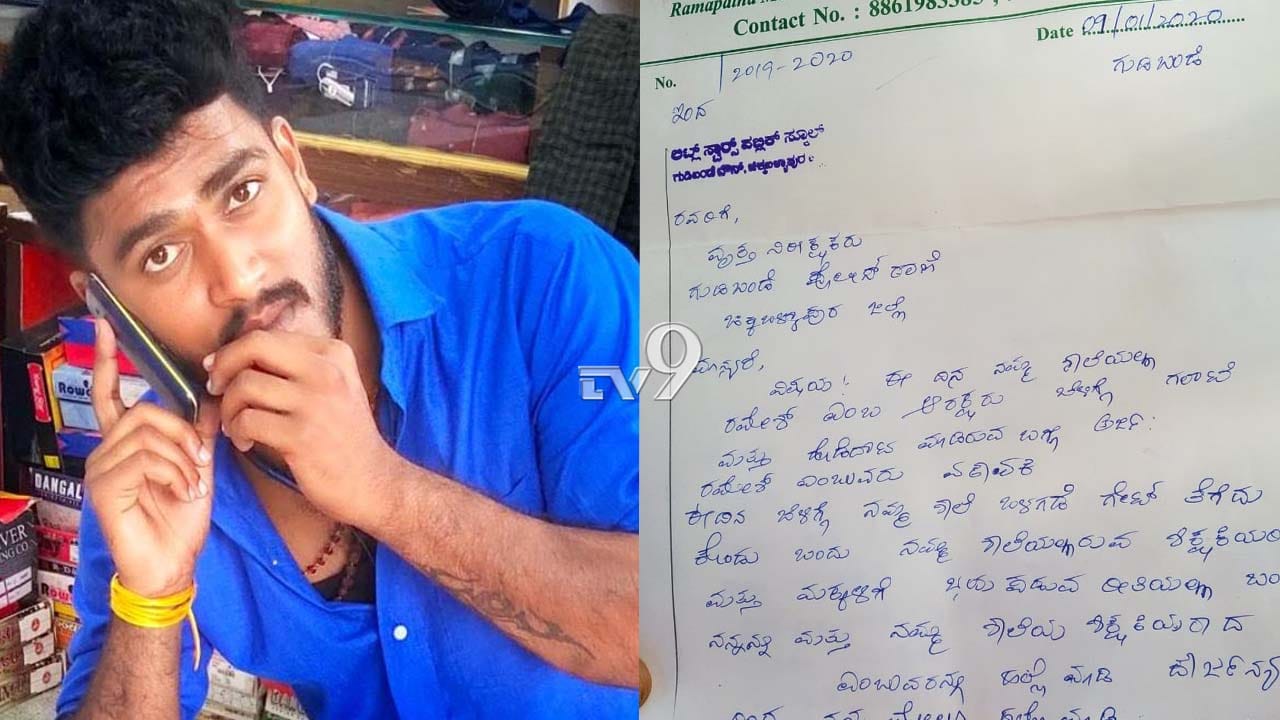 Row
DANGAL
VER
NG CO.
Row
TV9
Contact No. : 8861983385
Date 09/01/2020
No. /2019-2020
ಗುಡಿಬಂಡೆ
ಇಂದ
ಲಿಟ್ಲ್ ಸ್ಟಾರ್ಸ್ ಪಬ್ಲಿಕ್ ಸ್ಕೂಲ್
ಗುಡಿಬಂಡೆ ಟೌನ್, ಚಿಕ್ಕಬಳ್ಳಾಪುರ
ರವರಿಗೆ,
ವೃತ್ತ ನಿರೀಕ್ಷಕರು
ಗುಡಿಬಂಡೆ ಪೋಲೀಸ್ ಠಾಣೆ
ಚಿಕ್ಕಬಳ್ಳಾಪುರ ಜಿಲ್ಲೆ
ಮಾನ್ಯರೆ,
ವಿಷಯ: ಈ ದಿನ ನಮ್ಮ ಶಾಲೆಯಲ್ಲಿ
ರಮೇಶ್ ಎಂಬ ಆರಕ್ಷಕರು ಬೆಳಿಗ್ಗೆ ಗಲಾಟೆ
ಮತ್ತು ಮಾಡಿರುವ ಬಗ್ಗೆ ಅರ್ಜಿ:
ರಮೇಶ್ ಎಂಬುವರು
ಈ ದಿನ ಬೆಳಿಗ್ಗೆ ನಮ್ಮ ಶಾಲೆ ಒಳಗಡೆ ಗೇಟ್ ತೆಗೆದು
ಕೊಂಡು ಬಂದು ನಮ್ಮ ಶಾಲೆಯಲ್ಲಿರುವ
ಮತ್ತು ಮಕ್ಕಳಿಗೆ ಭಯ ಪಡುವ ರೀತಿಯಲ್ಲಿ
ನನ್ನನ್ನು ಮತ್ತು ನಮ್ಮ ಶಾಲೆಯ ಶಿಕ್ಷಕಿಯರಾದ
ಎಂಬುವರನ್ನು ಹಲ್ಲೆ ಮಾಡಿ